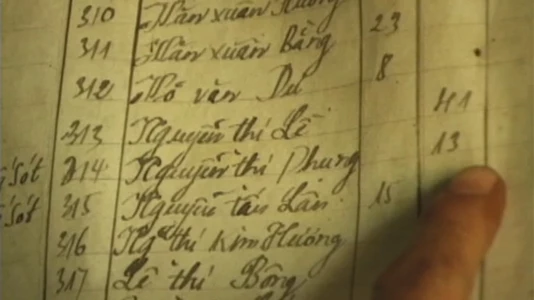 310 Trần xuân Hương 23
311 Trần xuân Bằng
312 Đỗ văn Du 8
313 Nguyễn thị Lê 41
sót 314 Nguyễn thị Phung 13
sót 315 Nguyễn tấn Lân 15
316 Ng thị Kim Hương
317 Lê thị Bông